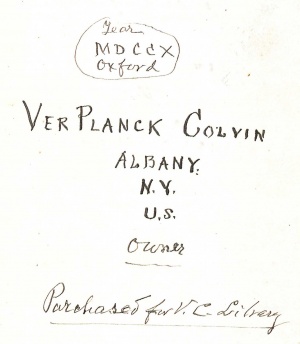 Year
MDCCX
Oxford
VERPLANCK COLVIN
ALBANY.
N.Y.
U.S.
Owner
Purchased for V. C. Library